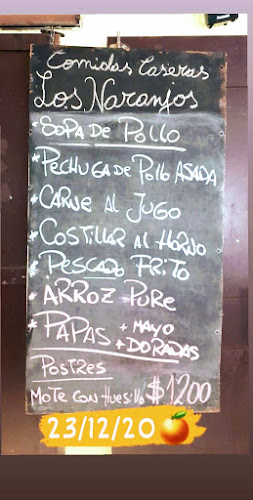 Comidas Caseras
Los Naranjos
* SOPA DE POLLO
* PECHUGA DE POLLO ASADA
* CARNE AL JUGO
* COSTILLAR AL HORNO
* PESCADO FRITO
* ARROZ - PURE
* PAPAS + MAYO
+ DORADAS
POSTRES
MOTE CON HUESILLO $1200
23/12/20